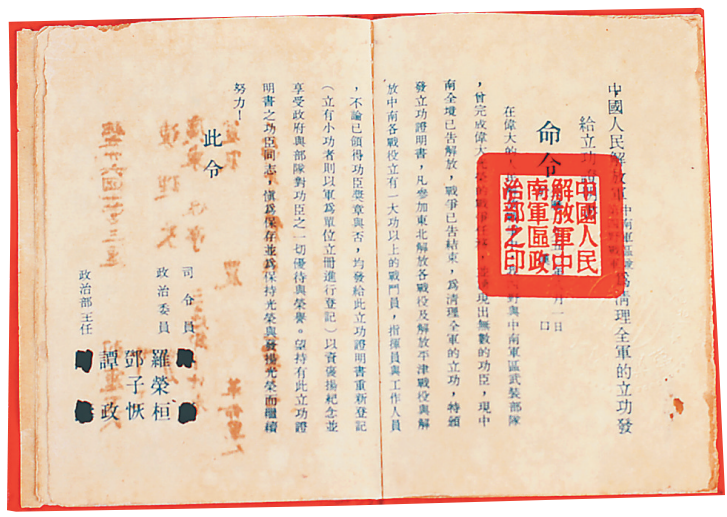 中國人民解放軍中南軍區為清理全軍的立功發
給立功
命令
月一日
在偉大的人民解放戰與中南軍區武裝部隊
，曾完成偉大的戰爭任務，現出無數的功臣，現中
南全境已告解放，戰爭已告結束，為清理全軍的立功，特頒
發立功證明書，凡參加東北解放各戰役及解放平津戰役與解
放中南各戰役立有一大功以上的戰鬥員，指揮員與工作人員
，不論已領得功臣獎章與否，均發給此立功證明書重新登記
（立有小功者則以軍為單位立冊進行登記）以資褒揚紀念並
享受政府與部隊對功臣之一切優待與榮譽。望持有此立功證
明書之功臣同志，慎為保存並為保持光榮與發揚光榮而繼續
努力！
此令
司令員
政治委員 羅榮桓
鄧子恢
政治部主任 譚政
中國人民
解放軍中
南軍區政
治部之印